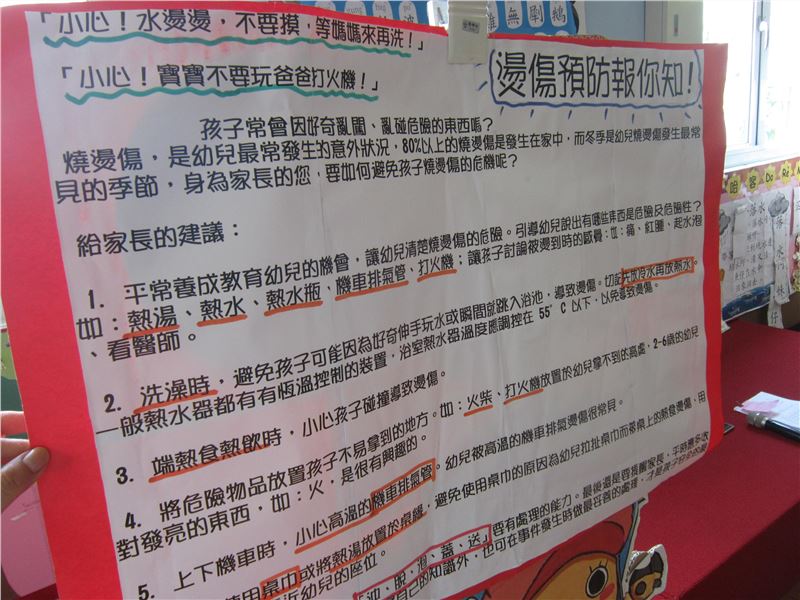 「小心！水燙燙，不要摸，等媽媽來再洗！」
「小心！寶寶不要玩爸爸打火機！」
燙傷預防報你知！
孩子常會因好奇亂闖、亂碰危險的東西嗎？
燒燙傷，是幼兒最常發生的意外狀況，80%以上的燒燙傷是發生在家中，而冬季是幼兒燒燙傷發生最常
見的季節，身為家長的您，要如何避免孩子燒燙傷的危機呢？
給家長的建議：
1. 平常養成教育幼兒的機會，讓幼兒清楚燒燙傷的危險。引導幼兒說出有哪些東西是危險及危險性？
如：熱湯、熱水、熱水瓶、機車排氣管、打火機；讓孩子討論被燙到時的感覺：如：痛、紅腫、起水泡
、看醫師。
2. 洗澡時，避免孩子可能因為好奇伸手玩水或瞬間就跳入浴池，導致燙傷。切記先放冷水再放熱水。
一般熱水器都有有恆溫控制的裝置，浴室熱水器溫度應調控在 55°C 以下，以免導致燙傷。
3. 端熱食熱飲時，小心孩子碰撞導致燙傷。
4. 將危險物品放置孩子不易拿到的地方。如：火柴、打火機放置於幼兒拿不到的高處，2-6歲的幼兒
對發亮的東西，如：火，是很有興趣的。
5. 上下機車時，小心高溫的機車排氣管。幼兒被高溫的機車排氣燙傷很常見。
使用桌巾或將熱湯放置於桌緣，避免使用桌巾的原因為幼兒拉扯桌巾而帶桌上的熱食燙傷、用
近幼兒的座位。
「沖、脫、泡、蓋、送」要有處理的能力。最後還是要提醒家長，平時
自己的知識外，也可在事件發生時做最妥善的處理，才是孩子安全的